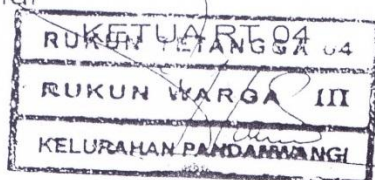 KETUA RT 04
RUKUN TETANGGA 04
RUKUN WARGA III
KELURAHAN PANDANWANGI